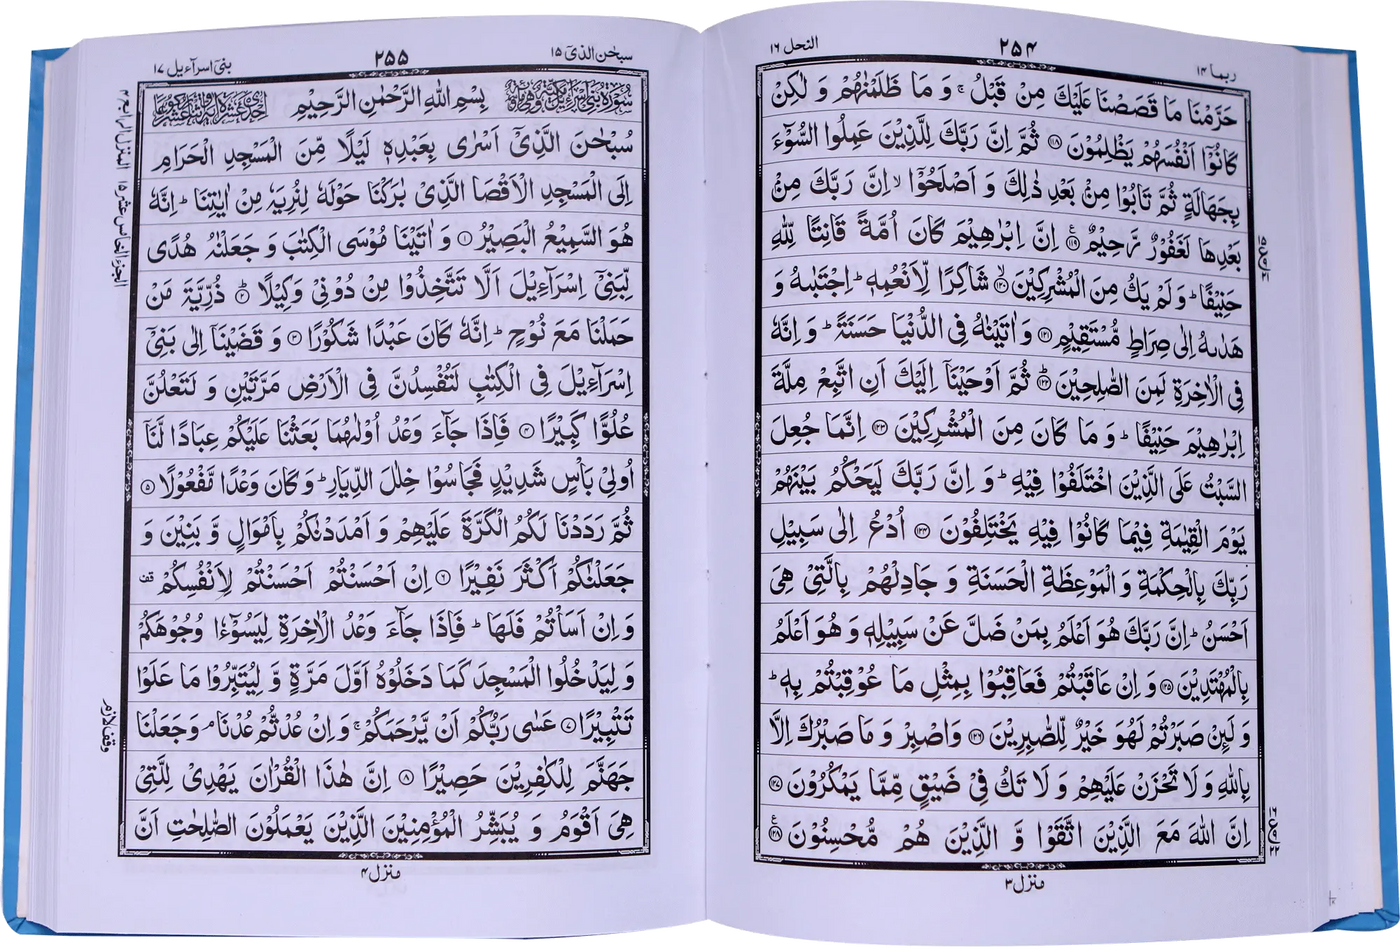 ربما ۱۴
۲۵۴
النحل ۱۶
حَرَّمْنَا مَا قَصَصْنَا عَلَيْكَ مِنْ قَبْلُ ۚ وَ مَا ظَلَمْنٰهُمْ وَ لٰكِنْ
كَانُوْۤا اَنْفُسَهُمْ يَظْلِمُوْنَ ﴿۱۱۸﴾ ثُمَّ اِنَّ رَبَّكَ لِلَّذِيْنَ عَمِلُوا السُّوْٓءَ
بِجَهَالَةٍ ثُمَّ تَابُوْا مِنْۢ بَعْدِ ذٰلِكَ وَ اَصْلَحُوْۤا ۙ اِنَّ رَبَّكَ مِنْۢ
بَعْدِهَا لَغَفُوْرٌ رَّحِيْمٌ ﴿۱۱۹﴾ اِنَّ اِبْرٰهِيْمَ كَانَ اُمَّةً قَانِتًا لِّلّٰهِ
حَنِيْفًا ؕ وَ لَمْ يَكُ مِنَ الْمُشْرِكِيْنَ ﴿۱۲۰﴾ شَاكِرًا لِّاَنْعُمِهٖ ؕ اِجْتَبٰىهُ وَ
هَدٰىهُ اِلٰى صِرَاطٍ مُّسْتَقِيْمٍ ﴿۱۲۱﴾ وَ اٰتَيْنٰهُ فِى الدُّنْيَا حَسَنَةً ؕ وَ اِنَّهٗ
فِى الْاٰخِرَةِ لَمِنَ الصّٰلِحِيْنَ ﴿۱۲۲﴾ ثُمَّ اَوْحَيْنَاۤ اِلَيْكَ اَنِ اتَّبِعْ مِلَّةَ
اِبْرٰهِيْمَ حَنِيْفًا ؕ وَ مَا كَانَ مِنَ الْمُشْرِكِيْنَ ﴿۱۲۳﴾ اِنَّمَا جُعِلَ
السَّبْتُ عَلَى الَّذِيْنَ اخْتَلَفُوْا فِيْهِ ؕ وَ اِنَّ رَبَّكَ لَيَحْكُمُ بَيْنَهُمْ
يَوْمَ الْقِيٰمَةِ فِيْمَا كَانُوْا فِيْهِ يَخْتَلِفُوْنَ ﴿۱۲۴﴾ اُدْعُ اِلٰى سَبِيْلِ
رَبِّكَ بِالْحِكْمَةِ وَ الْمَوْعِظَةِ الْحَسَنَةِ وَ جَادِلْهُمْ بِالَّتِىْ هِىَ
اَحْسَنُ ؕ اِنَّ رَبَّكَ هُوَ اَعْلَمُ بِمَنْ ضَلَّ عَنْ سَبِيْلِهٖ وَ هُوَ اَعْلَمُ
بِالْمُهْتَدِيْنَ ﴿۱۲۵﴾ وَ اِنْ عَاقَبْتُمْ فَعَاقِبُوْا بِمِثْلِ مَا عُوْقِبْتُمْ بِهٖ ؕ
وَ لَئِنْ صَبَرْتُمْ لَهُوَ خَيْرٌ لِّلصّٰبِرِيْنَ ﴿۱۲۶﴾ وَاصْبِرْ وَ مَا صَبْرُكَ اِلَّا
بِاللّٰهِ وَ لَا تَحْزَنْ عَلَيْهِمْ وَ لَا تَكُ فِىْ ضَيْقٍ مِّمَّا يَمْكُرُوْنَ ﴿۱۲۷﴾
اِنَّ اللّٰهَ مَعَ الَّذِيْنَ اتَّقَوْا وَّ الَّذِيْنَ هُمْ مُّحْسِنُوْنَ ﴿۱۲۸﴾
منزل ۳
سبحٰن الذیۤ ۱۵
۲۵۵
بنیۤ اسرآءیل ۱۷
بِسْمِ اللّٰهِ الرَّحْمٰنِ الرَّحِيْمِ
سُبْحٰنَ الَّذِىْۤ اَسْرٰى بِعَبْدِهٖ لَيْلًا مِّنَ الْمَسْجِدِ الْحَرَامِ
اِلَى الْمَسْجِدِ الْاَقْصَا الَّذِىْ بٰرَكْنَا حَوْلَهٗ لِنُرِيَهٗ مِنْ اٰيٰتِنَا ؕ اِنَّهٗ
هُوَ السَّمِيْعُ الْبَصِيْرُ ﴿۱﴾ وَ اٰتَيْنَا مُوْسَى الْكِتٰبَ وَ جَعَلْنٰهُ هُدًى
لِّبَنِىْۤ اِسْرَآءِيْلَ اَلَّا تَتَّخِذُوْا مِنْ دُوْنِىْ وَكِيْلًا ﴿۲﴾ ذُرِّيَّةَ مَنْ
حَمَلْنَا مَعَ نُوْحٍ ؕ اِنَّهٗ كَانَ عَبْدًا شَكُوْرًا ﴿۳﴾ وَ قَضَيْنَاۤ اِلٰى بَنِىْۤ
اِسْرَآءِيْلَ فِى الْكِتٰبِ لَتُفْسِدُنَّ فِى الْاَرْضِ مَرَّتَيْنِ وَ لَتَعْلُنَّ
عُلُوًّا كَبِيْرًا ﴿۴﴾ فَاِذَا جَآءَ وَعْدُ اُوْلٰىهُمَا بَعَثْنَا عَلَيْكُمْ عِبَادًا لَّنَاۤ
اُولِىْ بَاْسٍ شَدِيْدٍ فَجَاسُوْا خِلٰلَ الدِّيَارِ ؕ وَ كَانَ وَعْدًا مَّفْعُوْلًا ﴿۵﴾
ثُمَّ رَدَدْنَا لَكُمُ الْكَرَّةَ عَلَيْهِمْ وَ اَمْدَدْنٰكُمْ بِاَمْوَالٍ وَّ بَنِيْنَ وَ
جَعَلْنٰكُمْ اَكْثَرَ نَفِيْرًا ﴿۶﴾ اِنْ اَحْسَنْتُمْ اَحْسَنْتُمْ لِاَنْفُسِكُمْ قف
وَ اِنْ اَسَاْتُمْ فَلَهَا ؕ فَاِذَا جَآءَ وَعْدُ الْاٰخِرَةِ لِيَسُوْٓءٗا وُجُوْهَكُمْ
وَ لِيَدْخُلُوا الْمَسْجِدَ كَمَا دَخَلُوْهُ اَوَّلَ مَرَّةٍ وَّ لِيُتَبِّرُوْا مَا عَلَوْا
تَتْبِيْرًا ﴿۷﴾ عَسٰى رَبُّكُمْ اَنْ يَّرْحَمَكُمْ ۚ وَ اِنْ عُدْتُّمْ عُدْنَا ۘ وَ جَعَلْنَا
جَهَنَّمَ لِلْكٰفِرِيْنَ حَصِيْرًا ﴿۸﴾ اِنَّ هٰذَا الْقُرْاٰنَ يَهْدِىْ لِلَّتِىْ
هِىَ اَقْوَمُ وَ يُبَشِّرُ الْمُؤْمِنِيْنَ الَّذِيْنَ يَعْمَلُوْنَ الصّٰلِحٰتِ اَنَّ
وقف لازم
منزل ۴